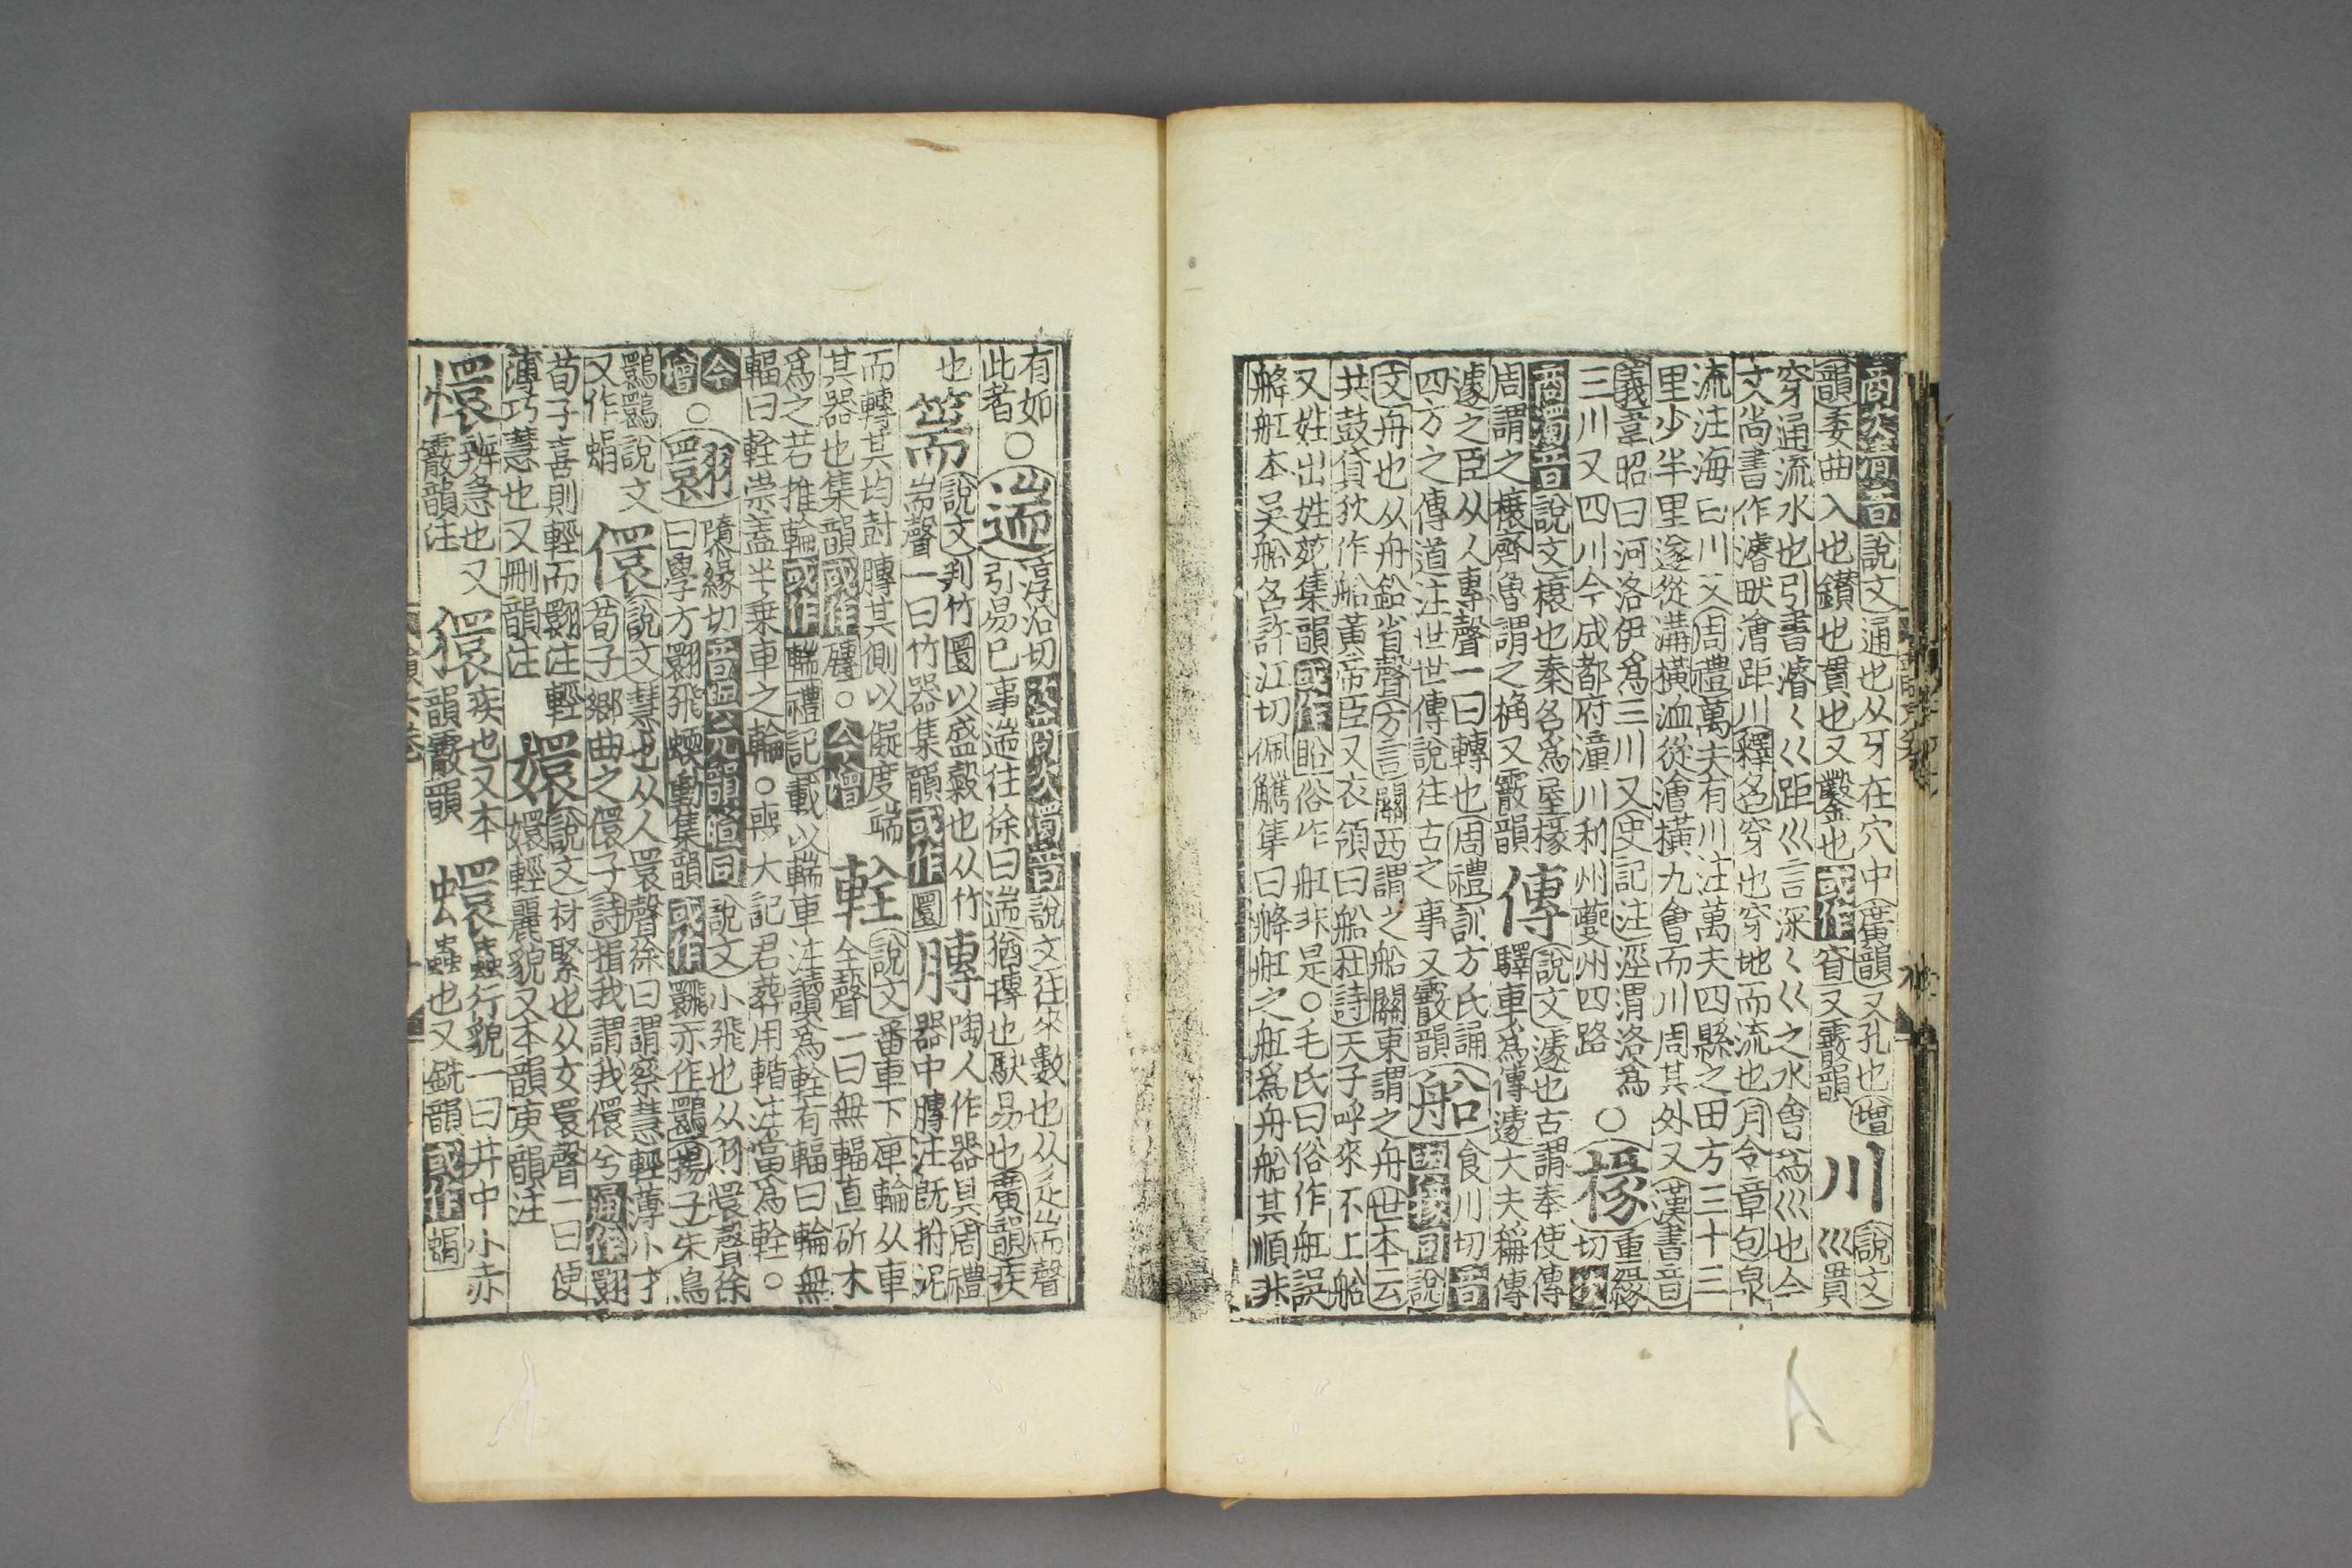 商次清音說文通也从牙在穴中廣韻又孔也增
韻委曲入也鑽也貫也又鑿也或作䆤又霰韻
川
說文巛貫
穿通流水也引書濬巜巛距巛言深巜巛之水會為巛也今
文尚書作濬畎澮距川釋名穿也穿地而流也月令章句泉
流注海曰川又周禮萬夫有川注萬夫四縣之田方三十三
里少半里遂從溝橫洫從澮橫九會而川周其外又漢書音
義韋昭曰河洛伊爲三川又史記注涇渭洛爲
三川又四川今成都府潼川利州夔州四路
○椽
重緣切次
商濁音說文榱也秦名爲屋椽
周謂之榱齊魯謂之桷又霰韻
傳
說文遽也古謂奉使傳
驛車爲傳遽大夫稱傳
遽之臣从人專聲一曰轉也周禮訓方氏誦
四方之傳道注世世傳說往古之事又霰韻
船
食川切音
與椽同說
文舟也从舟鉛省聲方言關西謂之船關東謂之舟世本云
共鼓貨狄作船黃帝臣又衣領曰船杜詩天子呼來不上船
又姓出姓苑集韻或作䑨俗作舡非是○毛氏曰俗作舡誤
舽舡本吳船名許江切佩觿集曰舽舡之舡爲舟船其順非
有如
此者
○遄
淳沿切次商次濁音說文往來數也从辵耑聲
引易巳事遄往徐曰遄猶摶也馱易也廣韻疾
也
篅
說文判竹圜以盛穀也从竹
耑聲一曰竹器集韻或作圌
膞
陶人作器具周禮
器中膞注旣拊泥
而轉其均尌膞其側以儗度端
其器也集韻或作䡱○今增
輇
說文蕃車下庳輪从車
全聲一曰無輻直斫木
爲之若推輪或作輲禮記載以輲車注讀爲輇有輻曰輪無
輻曰輇崇蓋半乗車之輪○喪大記君葬用輴注當爲輇○
今增
○翾
隳緣切音與公元韻暄同說文小飛也从羽睘聲徐
曰學方翾飛蝡動集韻或作䎀亦作䴉揚子朱鳥
䴉䴉說文
又作蜎
儇
說文慧也从人睘聲徐曰謂察慧輕薄小才
荀子鄉曲之儇子詩揖我謂我儇兮通作翾
荀子喜則輕而翾注輕
薄巧慧也又刪韻注
嬛
說文材緊也从女睘聲一曰便
嬛輕麗貌又本韻㢲韻注
懁
辨急也又
霰韻注
獧
疾也又本
韻霰韻
蠉
蟲行貌一曰井中小赤
蟲也又銑韻或作蜎